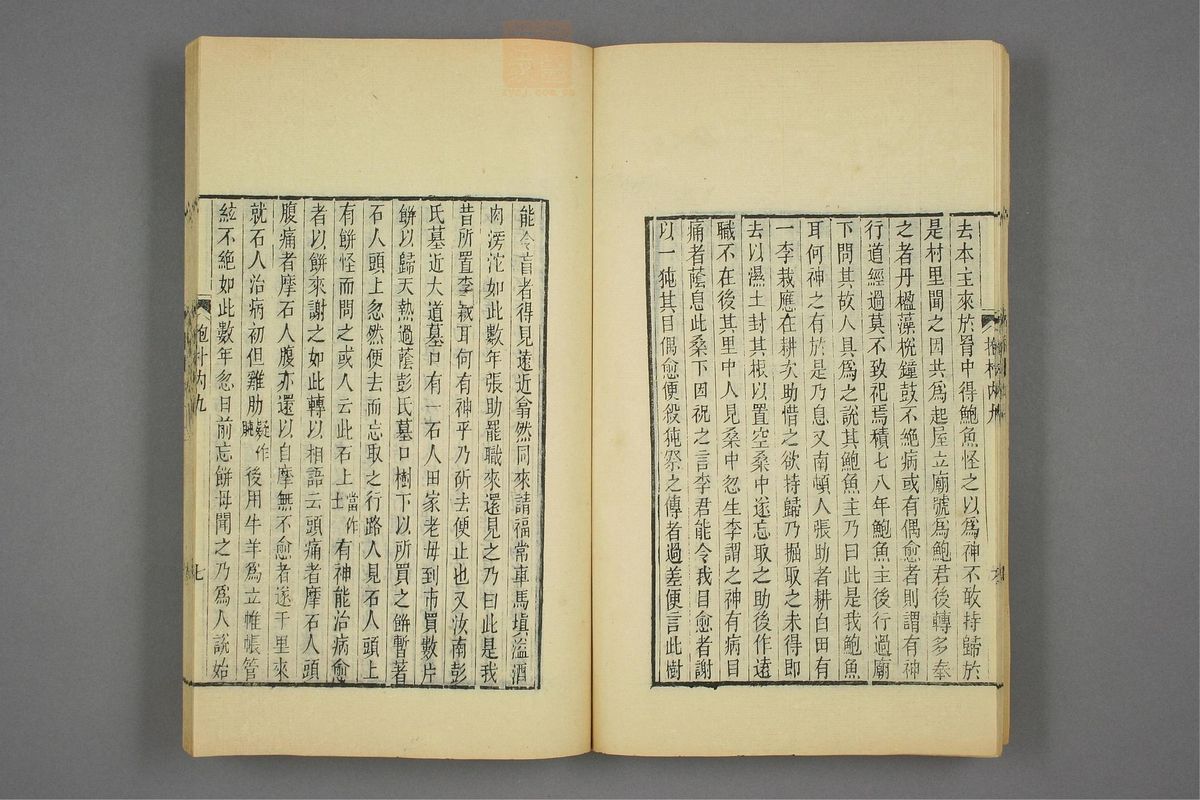 去本主來於罥中得鮑魚怪之以爲神不敢持歸於
是村里聞之因共爲起屋立廟號爲鮑君後轉多奉
之者丹楹藻梲鐘鼓不絕病或有偶愈者則謂有神
行道經過莫不致祀焉積七八年鮑魚主後行過廟
下問其故人具爲之說其鮑魚主乃曰此是我鮑魚
耳何神之有於是乃息又南頓人張助者耕白田有
一李栽應在耕次助惜之欲持歸乃掘取之未得即
去以濕土封其根以置空桑中遂忘取之助後作遠
職不在後其里中人見桑中忽生李謂之神有病目
痛者蔭息此桑下因祝之言李君能令我目愈者謝
以一㹠其目偶愈便殺㹠祭之傳者過差便言此樹
能令盲者得見遠近翕然同來請福常車馬塡溢酒
肉滂沱如此數年張助罷職來還見之乃曰此是我
昔所置李栽耳何有神乎乃斫去便止也又汝南彭
氏墓近大道墓口有一石人田家老母到市買數片
餅以歸天熱過蔭彭氏墓口樹下以所買之餅暫著
石人頭上忽然便去而忘取之行路人見石人頭上
有餅怪而問之或人云此石上當作土有神能治病愈
者以餅來謝之如此轉以相語云頭痛者摩石人頭
腹痛者摩石人腹亦還以自摩無不愈者遂千里來
就石人治病初但雞肋疑作豚後用牛羊爲立帷帳管
絃不絕如此數年忽日前忘餅母聞之乃爲人說始
抱朴內九
七